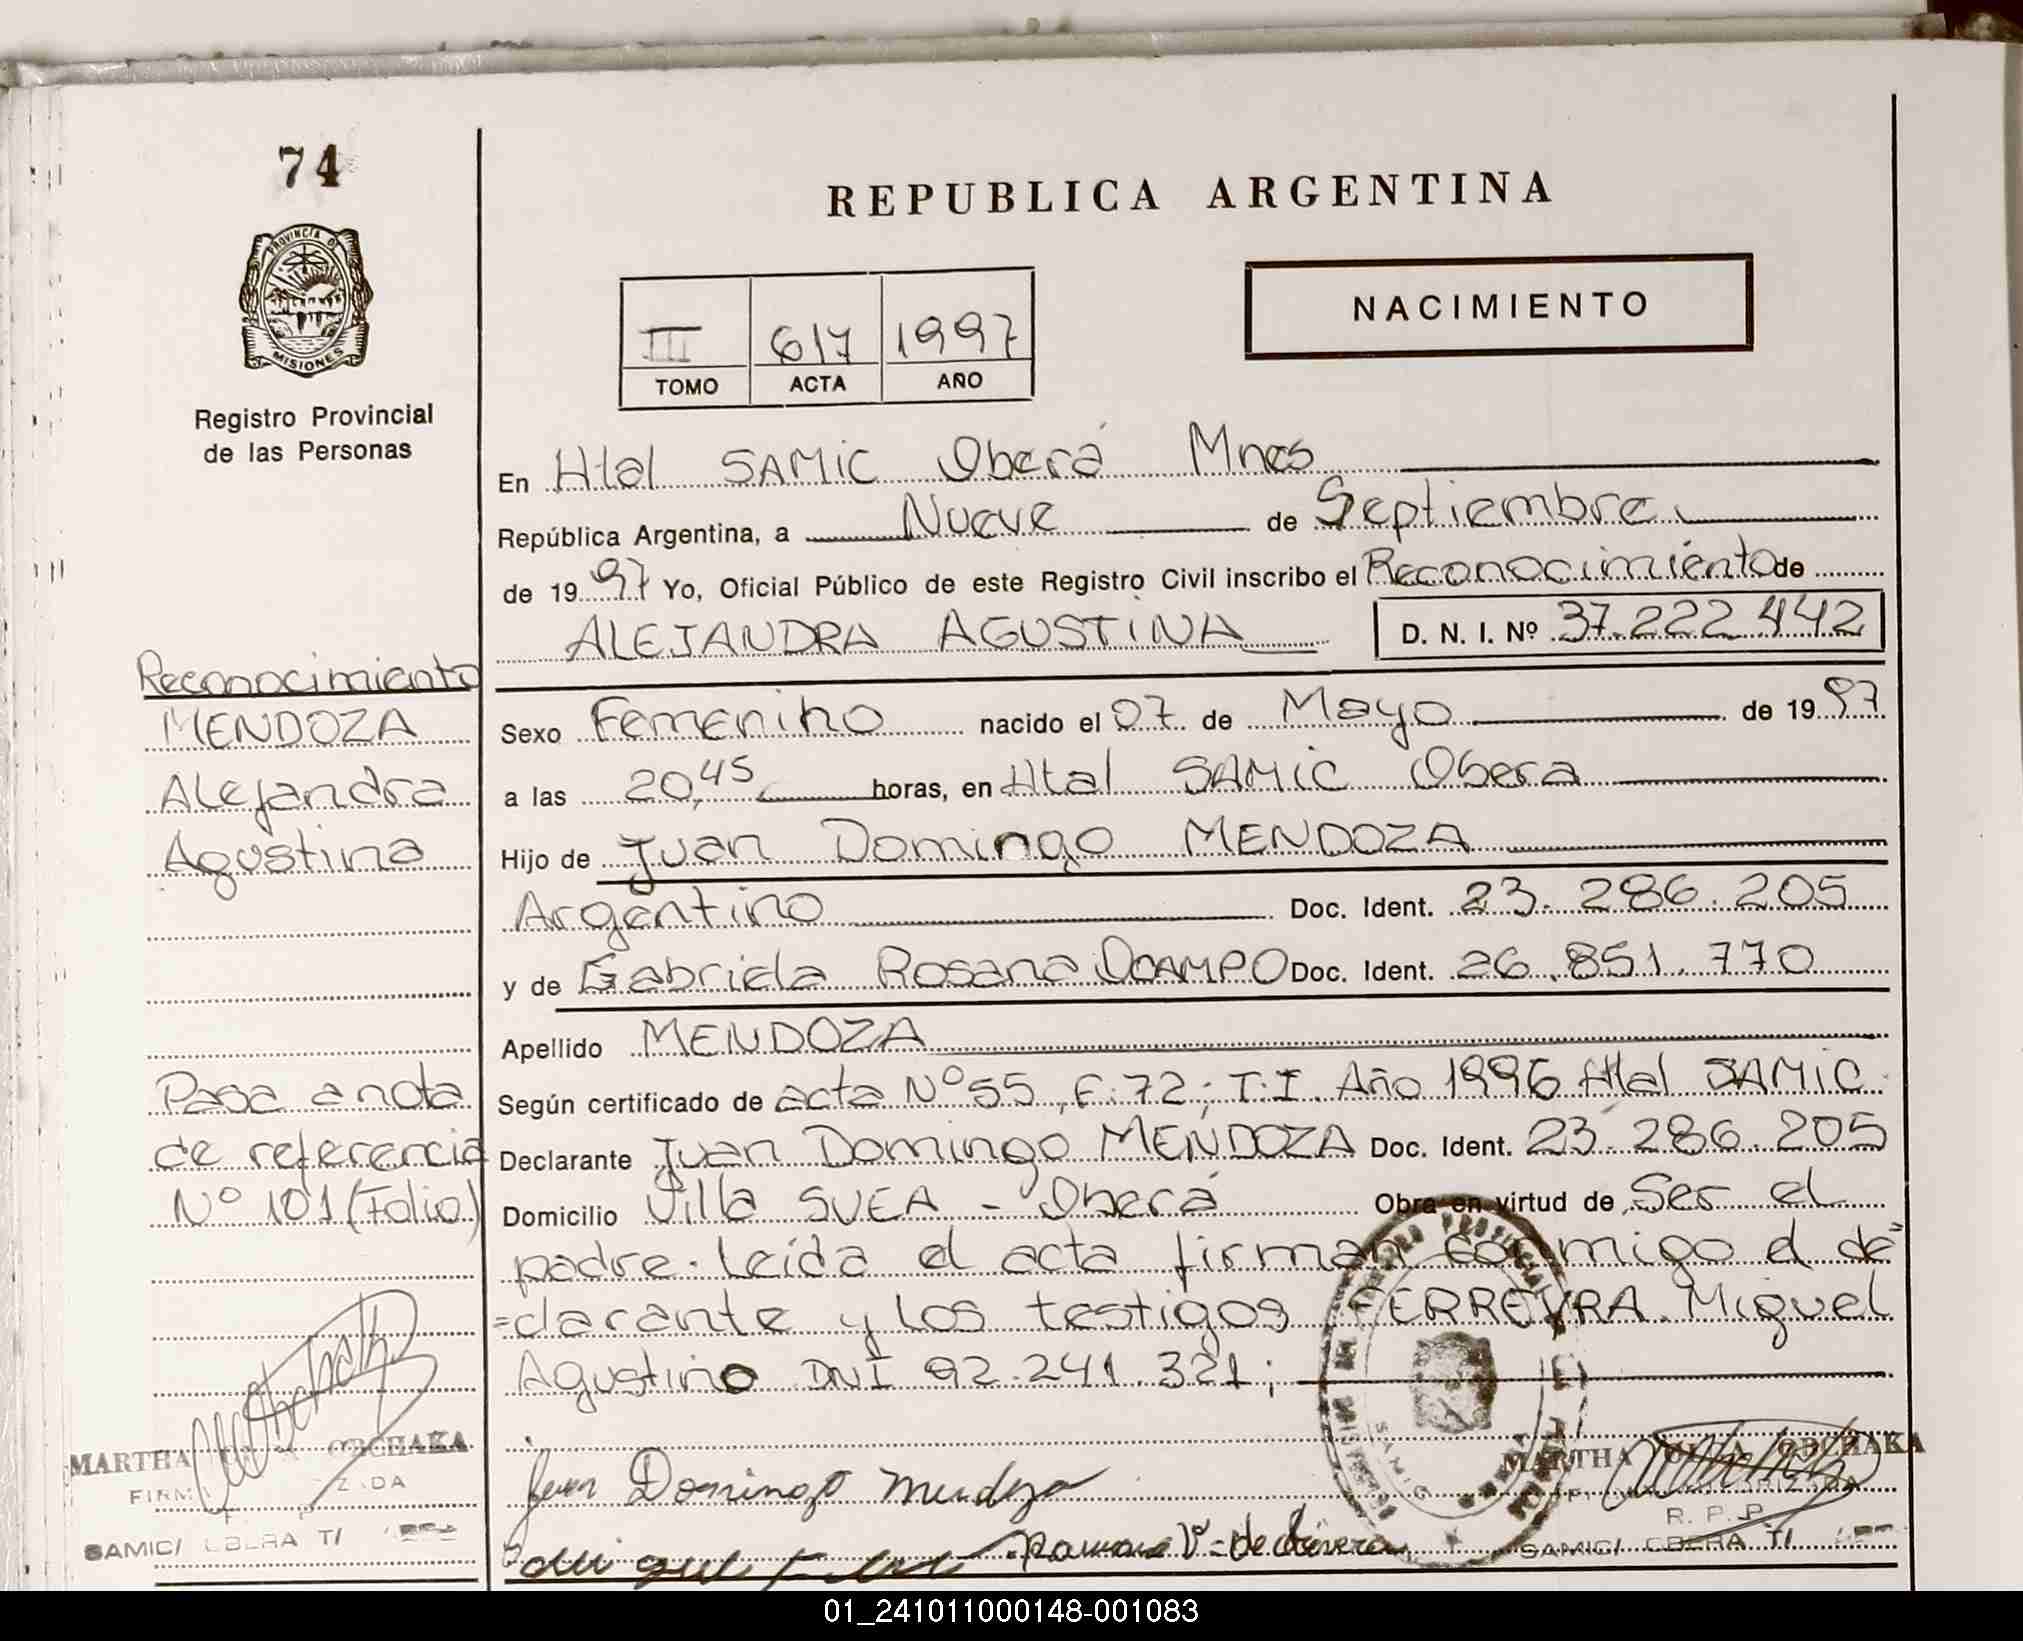 74
PROVINCIA DE
MISIONES
Registro Provincial
de las Personas
REPUBLICA ARGENTINA
NACIMIENTO
III 617 1997
TOMO ACTA AÑO
En Htal SAMIC Oberá Mnes
República Argentina, a Nueve de Septiembre
de 1997 Yo, Oficial Público de este Registro Civil inscribo el Reconocimiento de
ALEJANDRA AGUSTINA D. N. I. Nº 37.222.442
Sexo Femenino nacido el 07 de Mayo de 1997
a las 20,45 horas, en Htal SAMIC Obera
Hijo de Juan Domingo MENDOZA
Argentino Doc. Ident. 23.286.205
y de Gabriela Rosana OCAMPO Doc. Ident. 26.851.770
Apellido MENDOZA
Según certificado de acta Nº 55, F: 72; T: I. Año 1996 Htal SAMIC.
Declarante Juan Domingo MENDOZA Doc. Ident. 23.286.205
Domicilio Villa SVEA - Oberá Obra en virtud de Ser el
padre. Leída el acta firman conmigo el de=
=clarante y los testigos FERREYRA Miguel
Agustino DNI 92.241.321;
Reconocimiento
MENDOZA
Alejandra
Agustina
Pasa a nota
de referencia
Nº 101 (Folio)
MARTHA OBCHAKA
SAMIC/ OBERA T/
Juan Domingo Mendoza
MARTHA OBCHAKA
R. P. P.
SAMIC/ OBERA T/
01_241011000148-001083